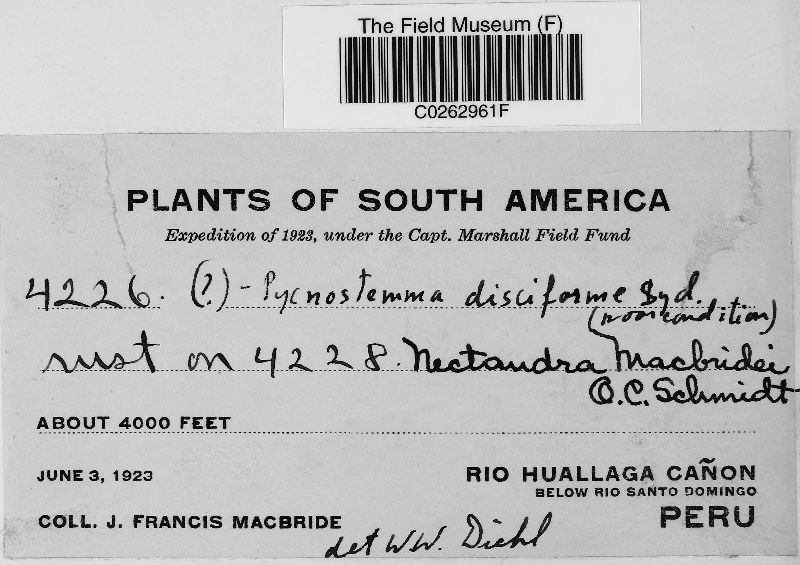 The Field Museum (F)
C0262961F
PLANTS OF SOUTH AMERICA
Expedition of 1923, under the Capt. Marshall Field Fund
4226. (?) - Pycnostemma disciforme Syd.
(poor condition)
rust on 4228. Nectandra Macbridei
O.C. Schmidt
ABOUT 4000 FEET
JUNE 3, 1923
RIO HUALLAGA CAÑON
BELOW RIO SANTO DOMINGO
COLL. J. FRANCIS MACBRIDE
PERU
det W.W. Diehl